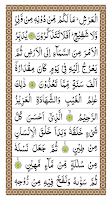 الْعَرْشِ ۖ مَا لَكُم مِّن دُونِهِ مِن وَلِيٍّ
وَلَا شَفِيعٍ ۚ أَفَلَا تَتَذَكَّرُونَ ۝ يُدَبِّرُ
الْأَمْرَ مِنَ السَّمَاءِ إِلَى الْأَرْضِ ثُمَّ
يَعْرُجُ إِلَيْهِ فِي يَوْمٍ كَانَ مِقْدَارُهُ
أَلْفَ سَنَةٍ مِّمَّا تَعُدُّونَ ۝ ذَٰلِكَ
عَالِمُ الْغَيْبِ وَالشَّهَادَةِ الْعَزِيزُ
الرَّحِيمُ ۝ الَّذِي أَحْسَنَ كُلَّ
شَيْءٍ خَلَقَهُ ۖ وَبَدَأَ خَلْقَ الْإِنسَانِ
مِن طِينٍ ۝ ثُمَّ جَعَلَ نَسْلَهُ مِن
سُلَالَةٍ مِّن مَّاءٍ مَّهِينٍ ۝
ثُمَّ سَوَّاهُ وَنَفَخَ فِيهِ مِن رُّوحِهِ